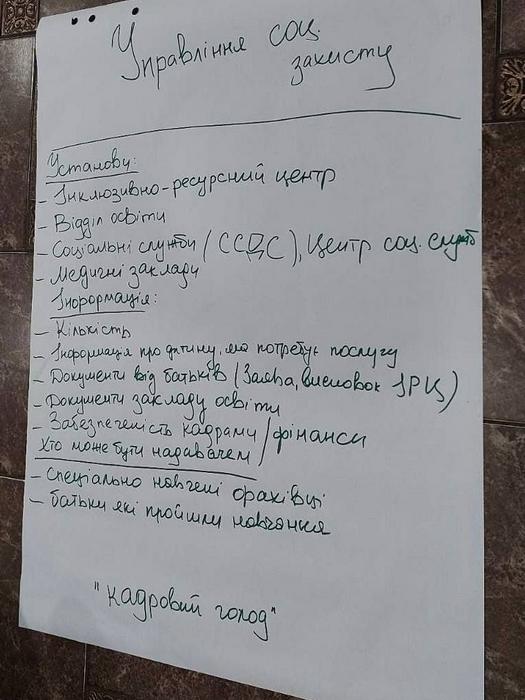 Управління соц.
захисту
Установи:
- Інклюзивно-ресурсний центр
- Відділ освіти
- Соціальні служби (ССДС), Центр соц. служб
- Медичні заклади
Інформація:
- Кількість
- Інформація про дитину, яка потребує послугу
- Документи від батьків (Заява, висновок ІРЦ)
- Документи закладу освіти
- Забезпеченість кадрами / фінанси
Хто може бути надавачем
- спеціально навчені фахівці
- батьки які пройшли навчання
"кадровий голод"